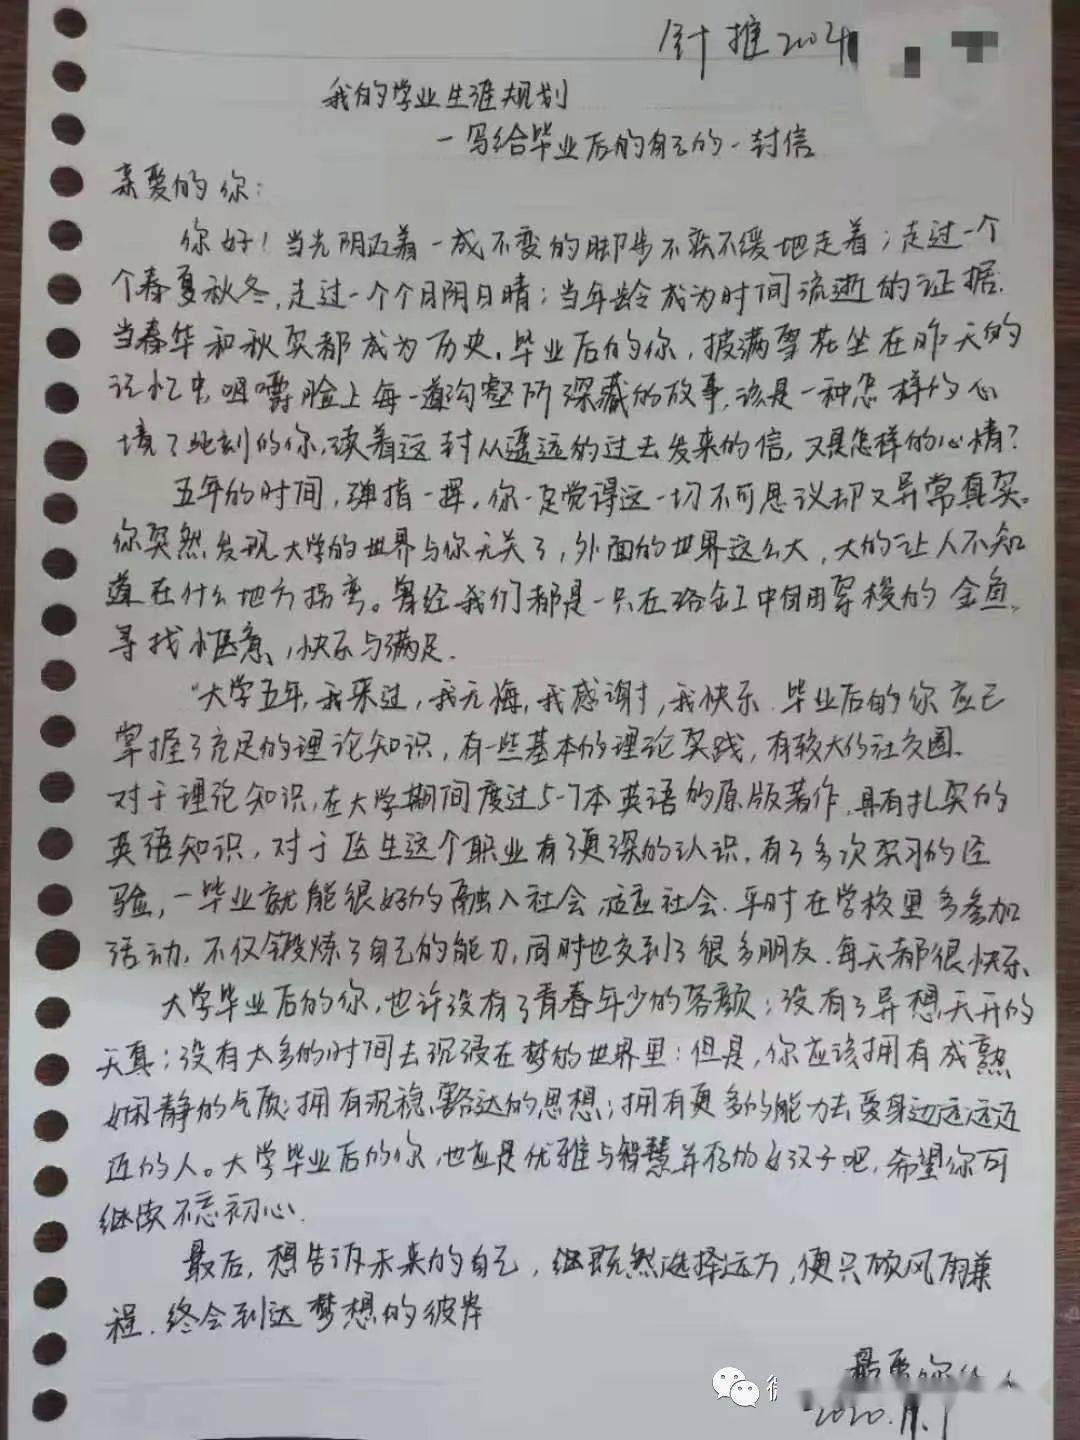 针推 204
我的学业生涯规划
—写给毕业后的自己的一封信
亲爱的你:
你好!当光阴迈着一成不变的脚步不疾不缓地走着;走过一个
个春夏秋冬,走过一个个月阴日晴;当年龄成为时间流逝的证据.
当春华和秋实都成为历史.毕业后的你,披满雪花坐在昨天的
记忆中,咀嚼脸上每一道沟壑所深藏的故事,该是一种怎样的心
境?此刻的你,读着这封从遥远的过去发来的信,又是怎样的心情?
五年的时间,弹指一挥,你一定觉得这一切不可思议却又异常真实。
你突然发现大学的世界与你无关了,外面的世界这么大,大的让人不知
道在什么地方拐弯。曾经我们都是一只在鱼缸中自由穿梭的金鱼,
寻找惬意、快乐与满足.
"大学五年,我来过,我无悔,我感谢,我快乐.毕业后的你应已
掌握了充足的理论知识,有一些基本的理论实践,有较大的社交圈.
对于理论知识,在大学期间度过5-7本英语的原版著作,具有扎实的
英语知识,对于医生这个职业有了更深的认识.有了多次实习的经
验,一毕业就能很好的融入社会,适应社会.平时在学校里多参加
活动,不仅锻炼了自己的能力,同时也交到了很多朋友.每天都很快乐.
大学毕业后的你,也许没有了青春年少的容颜;没有了异想天开的
天真;没有太多的时间去沉浸在梦的世界里;但是,你应该拥有成熟
娴静的气质;拥有沉稳、豁达的思想;拥有更多的能力去爱身边远远近
近的人。大学毕业后的你,也应是优雅与智慧并存的女汉子吧,希望你可
继续不忘初心.
最后,想告诉未来的自己,既然选择远方,便只顾风雨兼
程.终会到达梦想的彼岸
最爱你的
2020.11.1